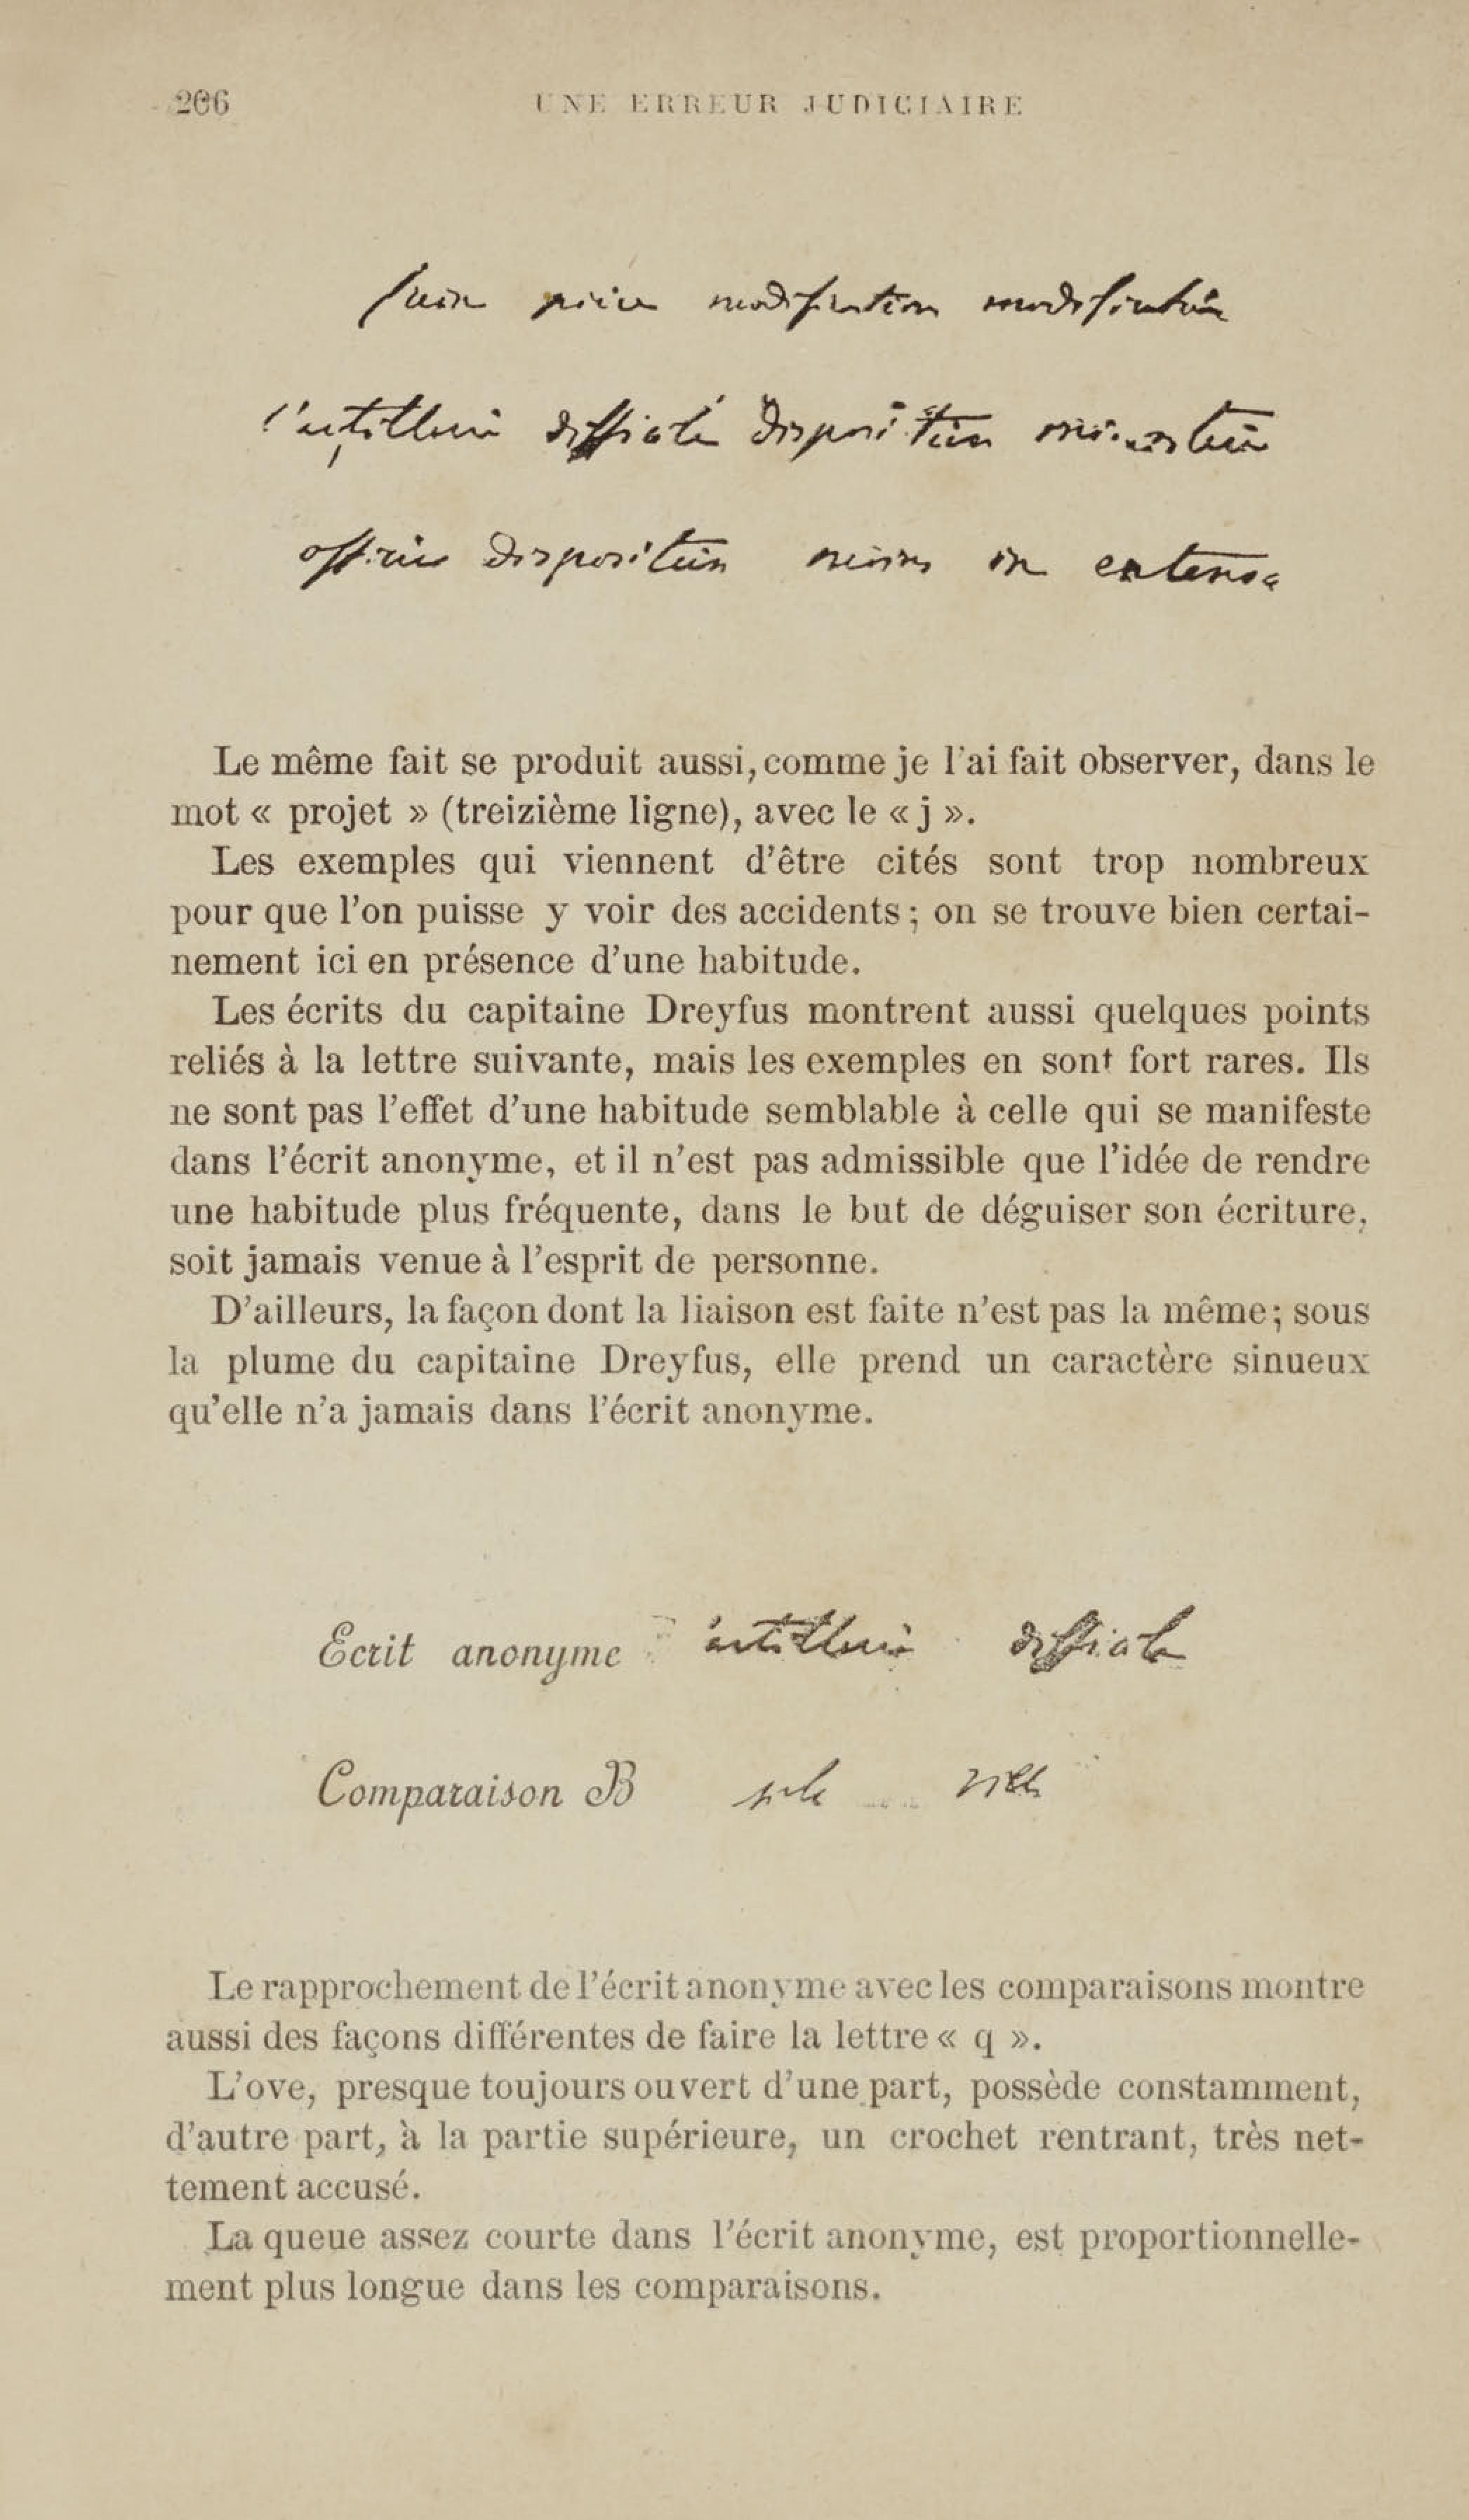 206 UNE ERREUR JUDICIAIRE
faire pièce modification modification
l'artillerie difficile disposition ministère
officier disposition moins in extenso
Le même fait se produit aussi, comme je l'ai fait observer, dans le
mot « projet » (treizième ligne), avec le « j ».
Les exemples qui viennent d'être cités sont trop nombreux
pour que l'on puisse y voir des accidents ; on se trouve bien certai-
nement ici en présence d'une habitude.
Les écrits du capitaine Dreyfus montrent aussi quelques points
reliés à la lettre suivante, mais les exemples en sont fort rares. Ils
ne sont pas l'effet d'une habitude semblable à celle qui se manifeste
dans l'écrit anonyme, et il n'est pas admissible que l'idée de rendre
une habitude plus fréquente, dans le but de déguiser son écriture,
soit jamais venue à l'esprit de personne.
D'ailleurs, la façon dont la liaison est faite n'est pas la même ; sous
la plume du capitaine Dreyfus, elle prend un caractère sinueux
qu'elle n'a jamais dans l'écrit anonyme.
Ecrit anonyme artillerie difficile
Comparaison B
Le rapprochement de l'écrit anonyme avec les comparaisons montre
aussi des façons différentes de faire la lettre « q ».
L'ove, presque toujours ouvert d'une part, possède constamment,
d'autre part, à la partie supérieure, un crochet rentrant, très net-
tement accusé.
La queue assez courte dans l'écrit anonyme, est proportionnelle-
ment plus longue dans les comparaisons.